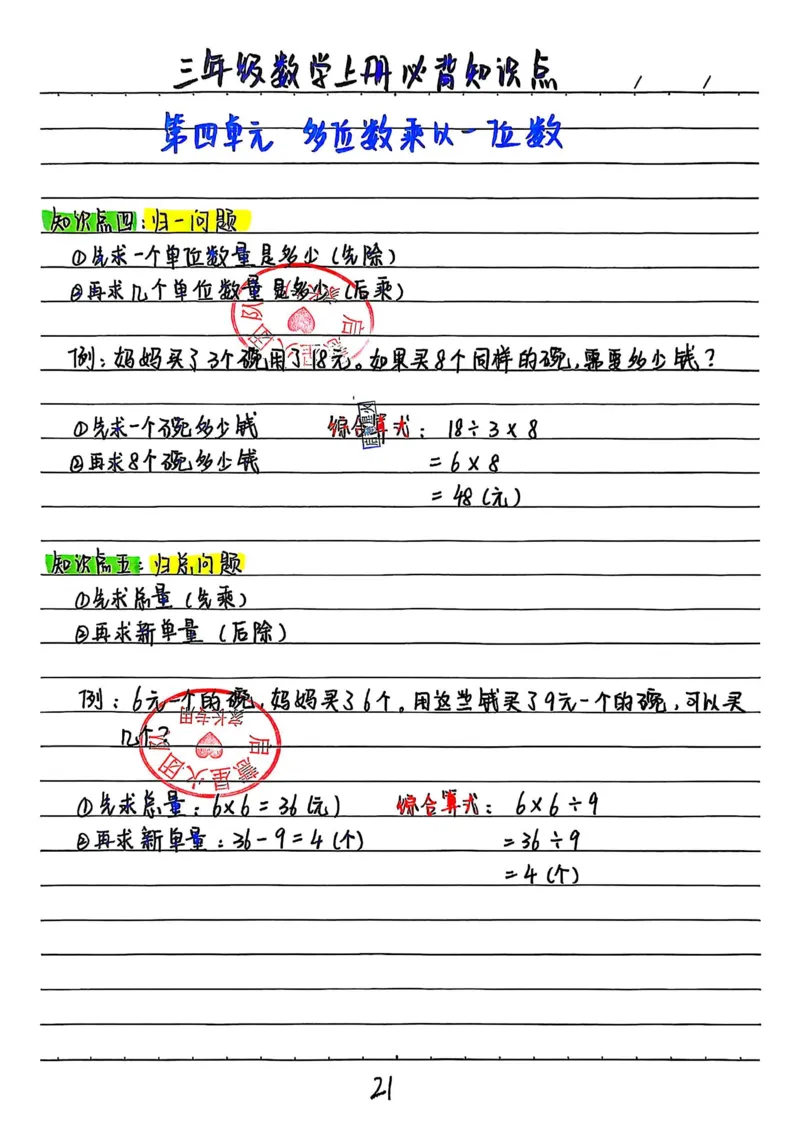 三年级数学上册必背知识点 / /
第四单元 多位数乘以一位数
知识点四:归一问题
①先求一个单位数量是多少(先除)
②再求几个单位数量是多少(后乘)
例:妈妈买了3个碗用了18元。如果买8个同样的碗,需要多少钱?
①先求一个碗多少钱 综合算式: 18÷3×8
②再求8个碗多少钱 =6×8
=48(元)
知识点五:归总问题
①先求总量(先乘)
②再求新单量(后除)
例:6元一个的碗,妈妈买了6个。用这些钱买了9元一个的碗,可以买
几个?
家长专用
启慧星火团队
①先求总量:6×6=36(元) 综合算式: 6×6÷9
②再求新单量:36-9=4(个) =36÷9
=4(个)
21